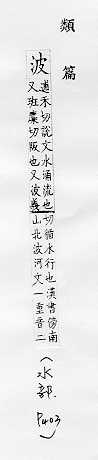 類篇
波
逋禾切說文水涌流也
又班糜切阪也又波義
切循水行也漢書傍南
山北波河文一重音二
(水部. P403)